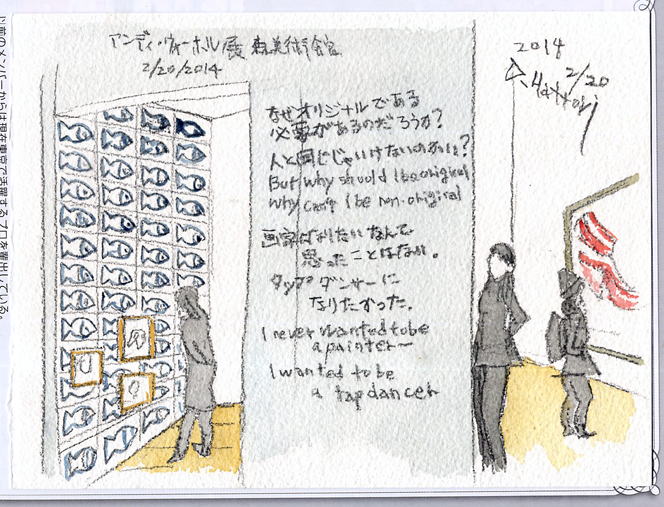 アンディ・ウォーホル展 森美術館
2/20/2014
なぜオリジナルである
必要があるのだろうか?
人と同じじゃいけないのかい?
But why should I be original
Why can't I be non-original
画家になりたいなんて
思ったことはない。
タップダンサーに
なりたかった。
I never wanted to be
a painter—
I wanted to be
a tap dancer
2014
2/20
Hattori
以前のメンバーからは現在東京で活躍するプロを輩出している。